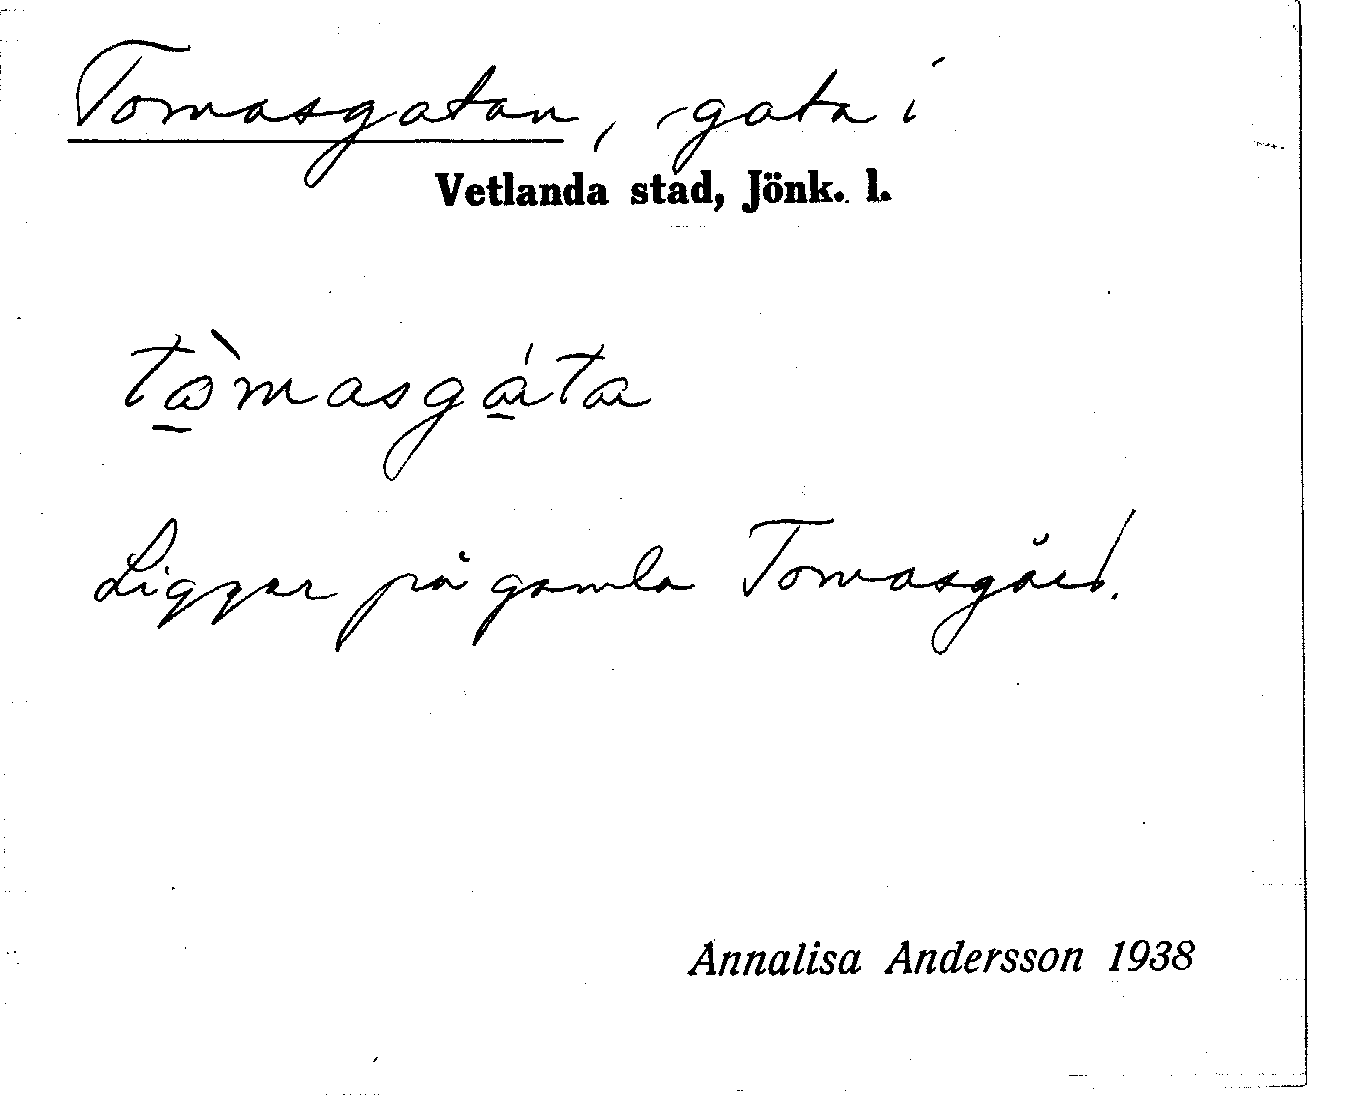 Tomasgatan, gata i
Vetlanda stad, Jönk. l.
tòmasgáta
Ligger på gamla Tomasgård.
Annalisa Andersson 1938